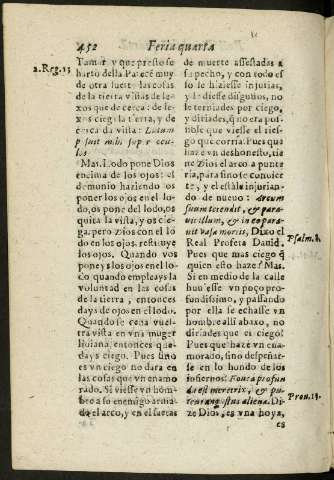 452 Feria quarta
2. Reg. 13
Tamar y que presto se
harto della Parece muy
de otra suerte las cosas
de la tierra vistas de le-
xos que de cerca: de le-
xos ciega la tierra, y de
cerca da vista:
sunt mihi super ocu-
los
Mas. Lodo pone Dios
encima de los ojos: el
demonio haziendo os
poner los ojos en el lo-
do, os pone del lodo, os
quita la vista, y os cie-
ga. pero Dios con el lo
do en los ojos. restituye
los ojos. Quando vos
poneys los ojos en el lo
do quando empleays la
voluntad en las cosas
de la tierra, entonces
days de ojos en el lodo.
Quando se ceua vues-
tra vista en vna muger
liuiana, entonces que-
days ciego. Pues sino
es vn ciego no dara en
las cosas que vn enamo
rado. Si viesse vn hom
bre a su enemigo arma
do el arco, y en el saetas
de muerte assestadas a
su pecho, y con todo es
so le hiziesse injurias,
y le diesse disgustos, no
le terniades por ciego, y
diriades, que no era pos
sible que viesse el ries-
go que corria. Pues qua
haze vn deshonesto, tie
ne Dios el arco a punte
ria, para sino se conuir-
te, y el estale injurian-
do de nueuo: Arcum
suum tetendit, & para-
uit illum, & in eo para-
uit vasa mortis, Dixo el
Real Profeta Dauid.
Psalm. 8.
Pues que mas ciego q̃
quien esto haze? Mas.
Si en medio de la calle
huuiesse vn poço pro-
fundissimo, y passando
por ella se echasse vn
hombre alli abaxo, no
diriades que es ciego?
Pues que haze vn ena-
morado, sino despeñar-
se en lo hondo de los
infiernos: Fouea profun
da est meretrix, & pu-
teus angustus aliena. Di-
Prou.
ze Dios, es vna hoya,
es